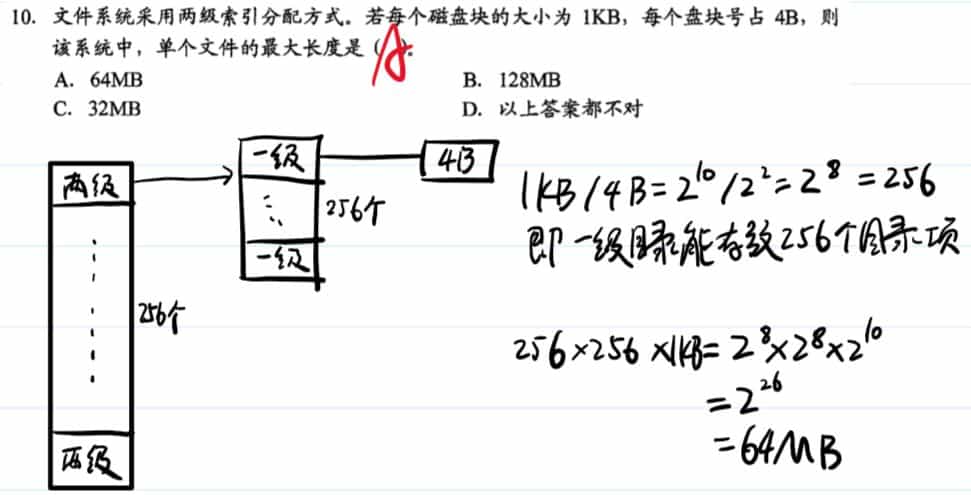 10. 文件系统采用两级索引分配方式。若每个磁盘块的大小为 1KB，每个盘块号占 4B，则
该系统中，单个文件的最大长度是（A）。
A. 64MB
B. 128MB
C. 32MB
D. 以上答案都不对
两级
256个
两级
一级
256个
一级
4B
1KB/4B=2^10/2^2=2^8=256
即一级目录能存放256个目录项
256×256×1KB=2^8×2^8×2^10
=2^26
=64MB